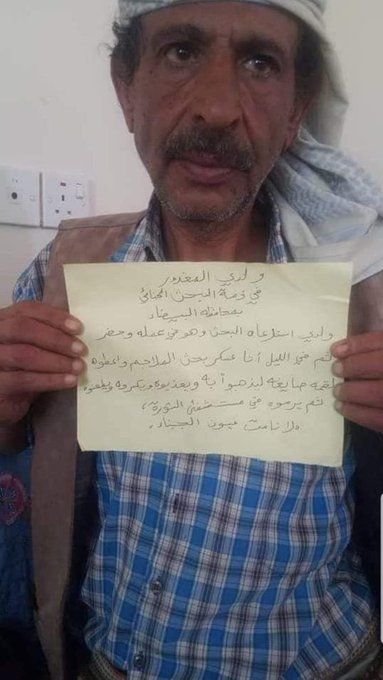 ولدي المغدور
في ذمة البحث الجنائي
بمحافظة البيضاء
ولدي استدعاه البحث وهو في عمله وحضر
ثم في الليل أتا عسكر بحث الملاجم واعطوه
لهم ليذهبوا به ويعذبوه
ثم يرموه في مستشفى الثورة،
فلا نامت عيون الجبناء.